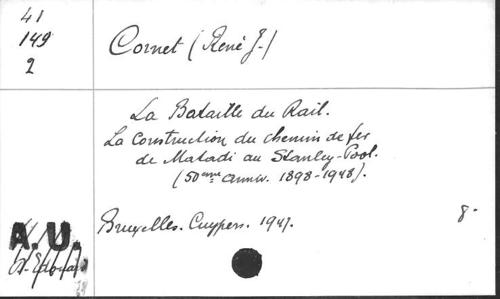 41
149
2
Cornet (René J.)
La Bataille du Rail.
La Construction du chemin de fer
de Matadi au Stanley-Pool.
(50ème anniv. 1898-1948).
Bruxelles. Cuypers. 1947.
8.
A.U.